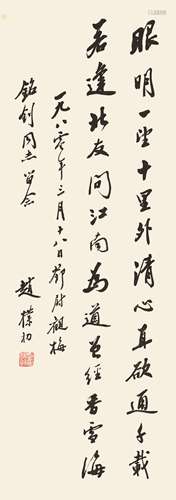 眼明一望十里外清心直欲通千载
若逢北友问江南为道曾经香雪海
一九八〇年三月十八日邓尉观梅
铭剑同志留念
赵樸初